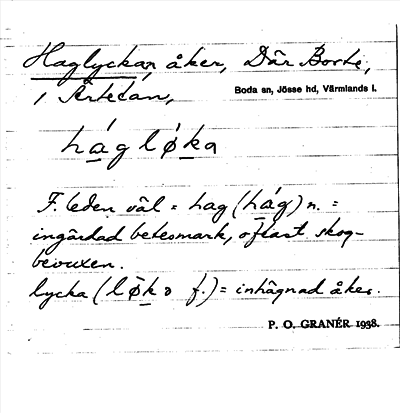 Haglyckan, åker, Där Borte,
i Ärtetan,
Boda sn, Jösse hd, Värmlands l.
hág lǿka
F. leden väl = hag (hág) n. =
ingärdad betesmark, oftast skog-
bevuxen.
lycka (lǿka f.) = inhägnad åker.
P. O. GRANÉR 1938.